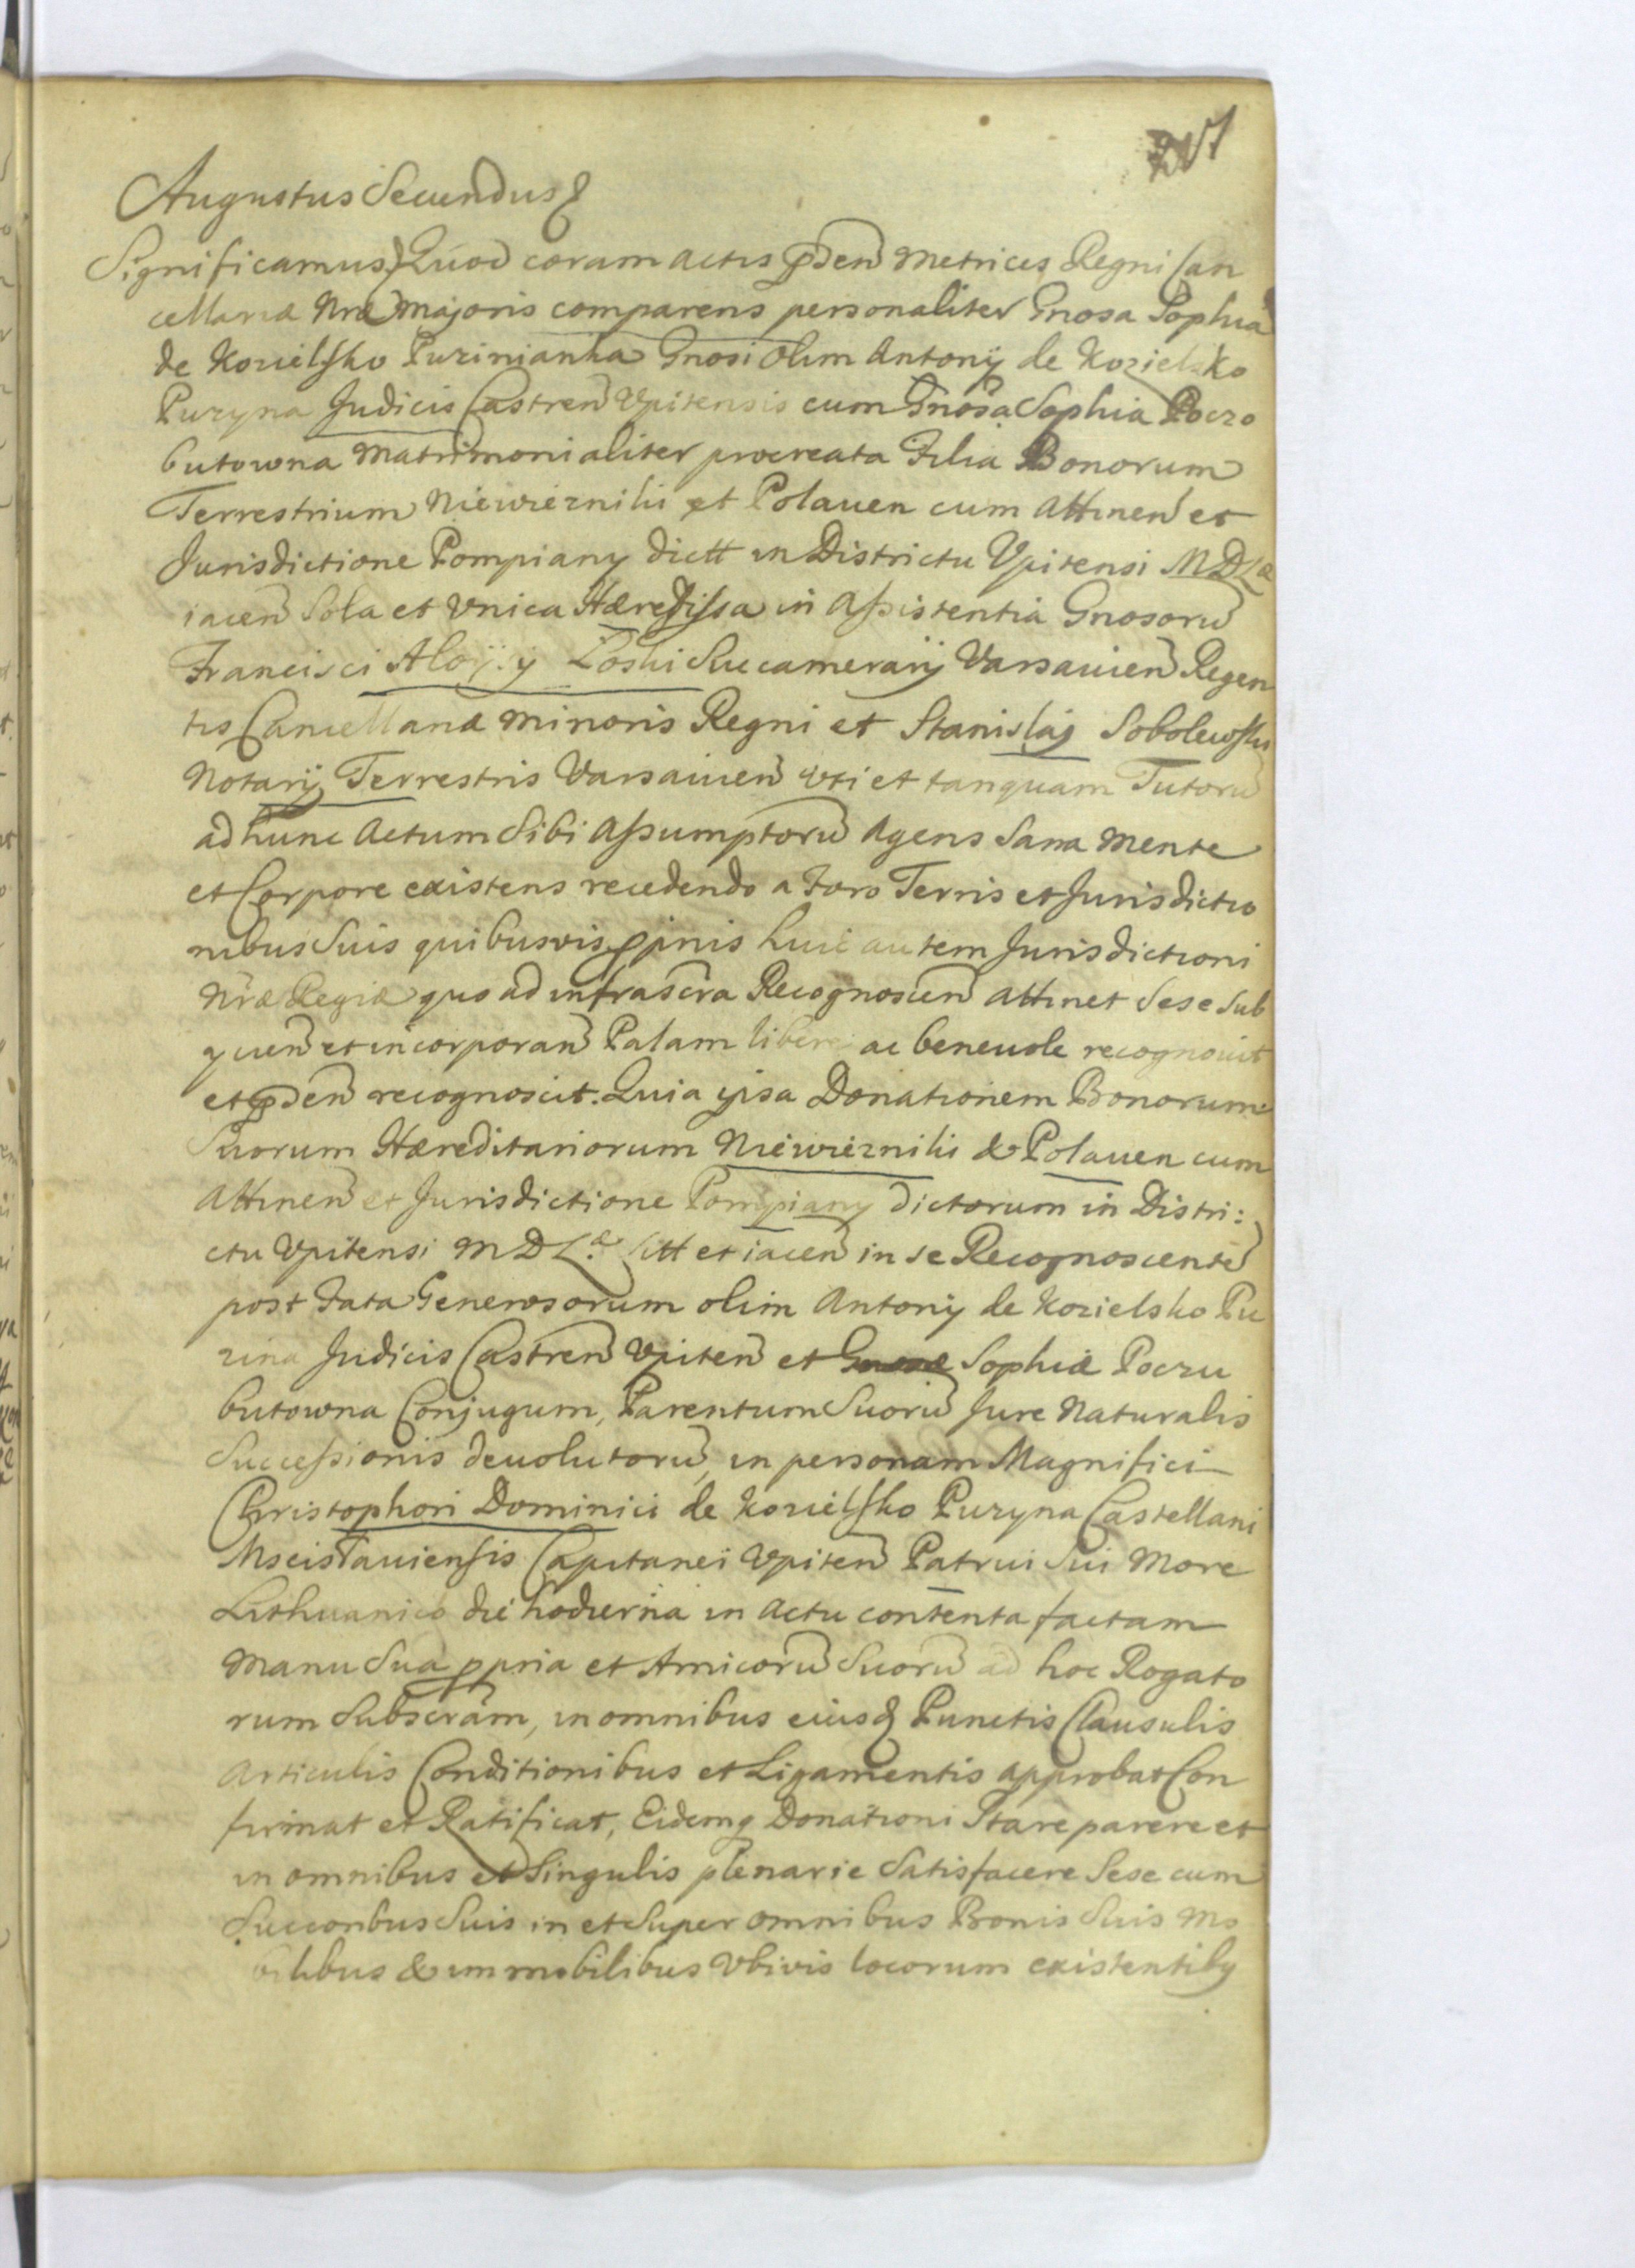 Augustus Secundus &
Significamus & Quod coram actis pñden Metrices Regni Can
cellariæ Nræ Majoris comparens personaliter Gnosa Sophia
de Kozielsko Puzinianka Gnosi olim Antonij de Kozielsko
Puzyna Judicis Castren Upitensis cum Gnosa Sophia Poczo
butowna Matrimonialiter procreata Filia Bonorum
Terrestrium Niewiezniki et Polauen cum Attinen et
Jurisdictione Pompiany dictt in Districtu Upitensi M D La
iacen Sola et Unica Hæredissa in Assistentia Gnosorũ
Francisci Aloijzij Loski Succamerarij Varsauien Regen
tis Cancellariæ Minoris Regni et Stanislaj Sobolewski
Notarij Terrestris Varsauien uti et tanquam Tutorũ
ad hunc Actum Sibi Assumptorũ Agens Sana Mente
et Corpore existens recedendo a Foro Terris et Jurisdictio
nibus Suis quibusvis pprijs huic autem Jurisdictioni
Nræ Regiæ quo ad infrascra Recognoscen attinet Sese Sub
ijcien et incorporan Palam libere ac beneuole recognouit
et pñden recognoscit. Quia ipsa Donationem Bonorum
Suorum Hæreditariorum Niewiezniki & Polauen cum
Attinen et Jurisdictione Pompiany dictorum in Distri:
ctu Upitensi M D L.æ Sitt et iacen in se Recognoscentẽ
post Fata Generosorum olim Antonij de Kozielsko Pu
zina Judicis Castren Upiten et Sophiæ Poczu
butowna Conjugum, Parentum Suorũ Jure Naturalis
Successionis deuolutorũ, in personam Magnifici
Christophori Dominici de Kozielsko Puzyna Castellani
Mscislauiensis Capitanei Upiten Patrui Sui More
Lithuanico die hodierna in Actu contenta factam
Manu Sua ppria et Amicorũ Suorũ ad hoc Rogato
rum Subscram, in omnibus eiusq Punctis Clausulis
Articulis Conditionibus et Ligamentis approbat Con
firmat et Ratificat, Eidemq Donationi Stare parere et
in omnibus et Singulis plenarie Satisfacere Sese cum
Succoribus Suis in et Super omnibus Bonis Suis Mo
bilibus & immobilibus Ubivis locorum existentibq